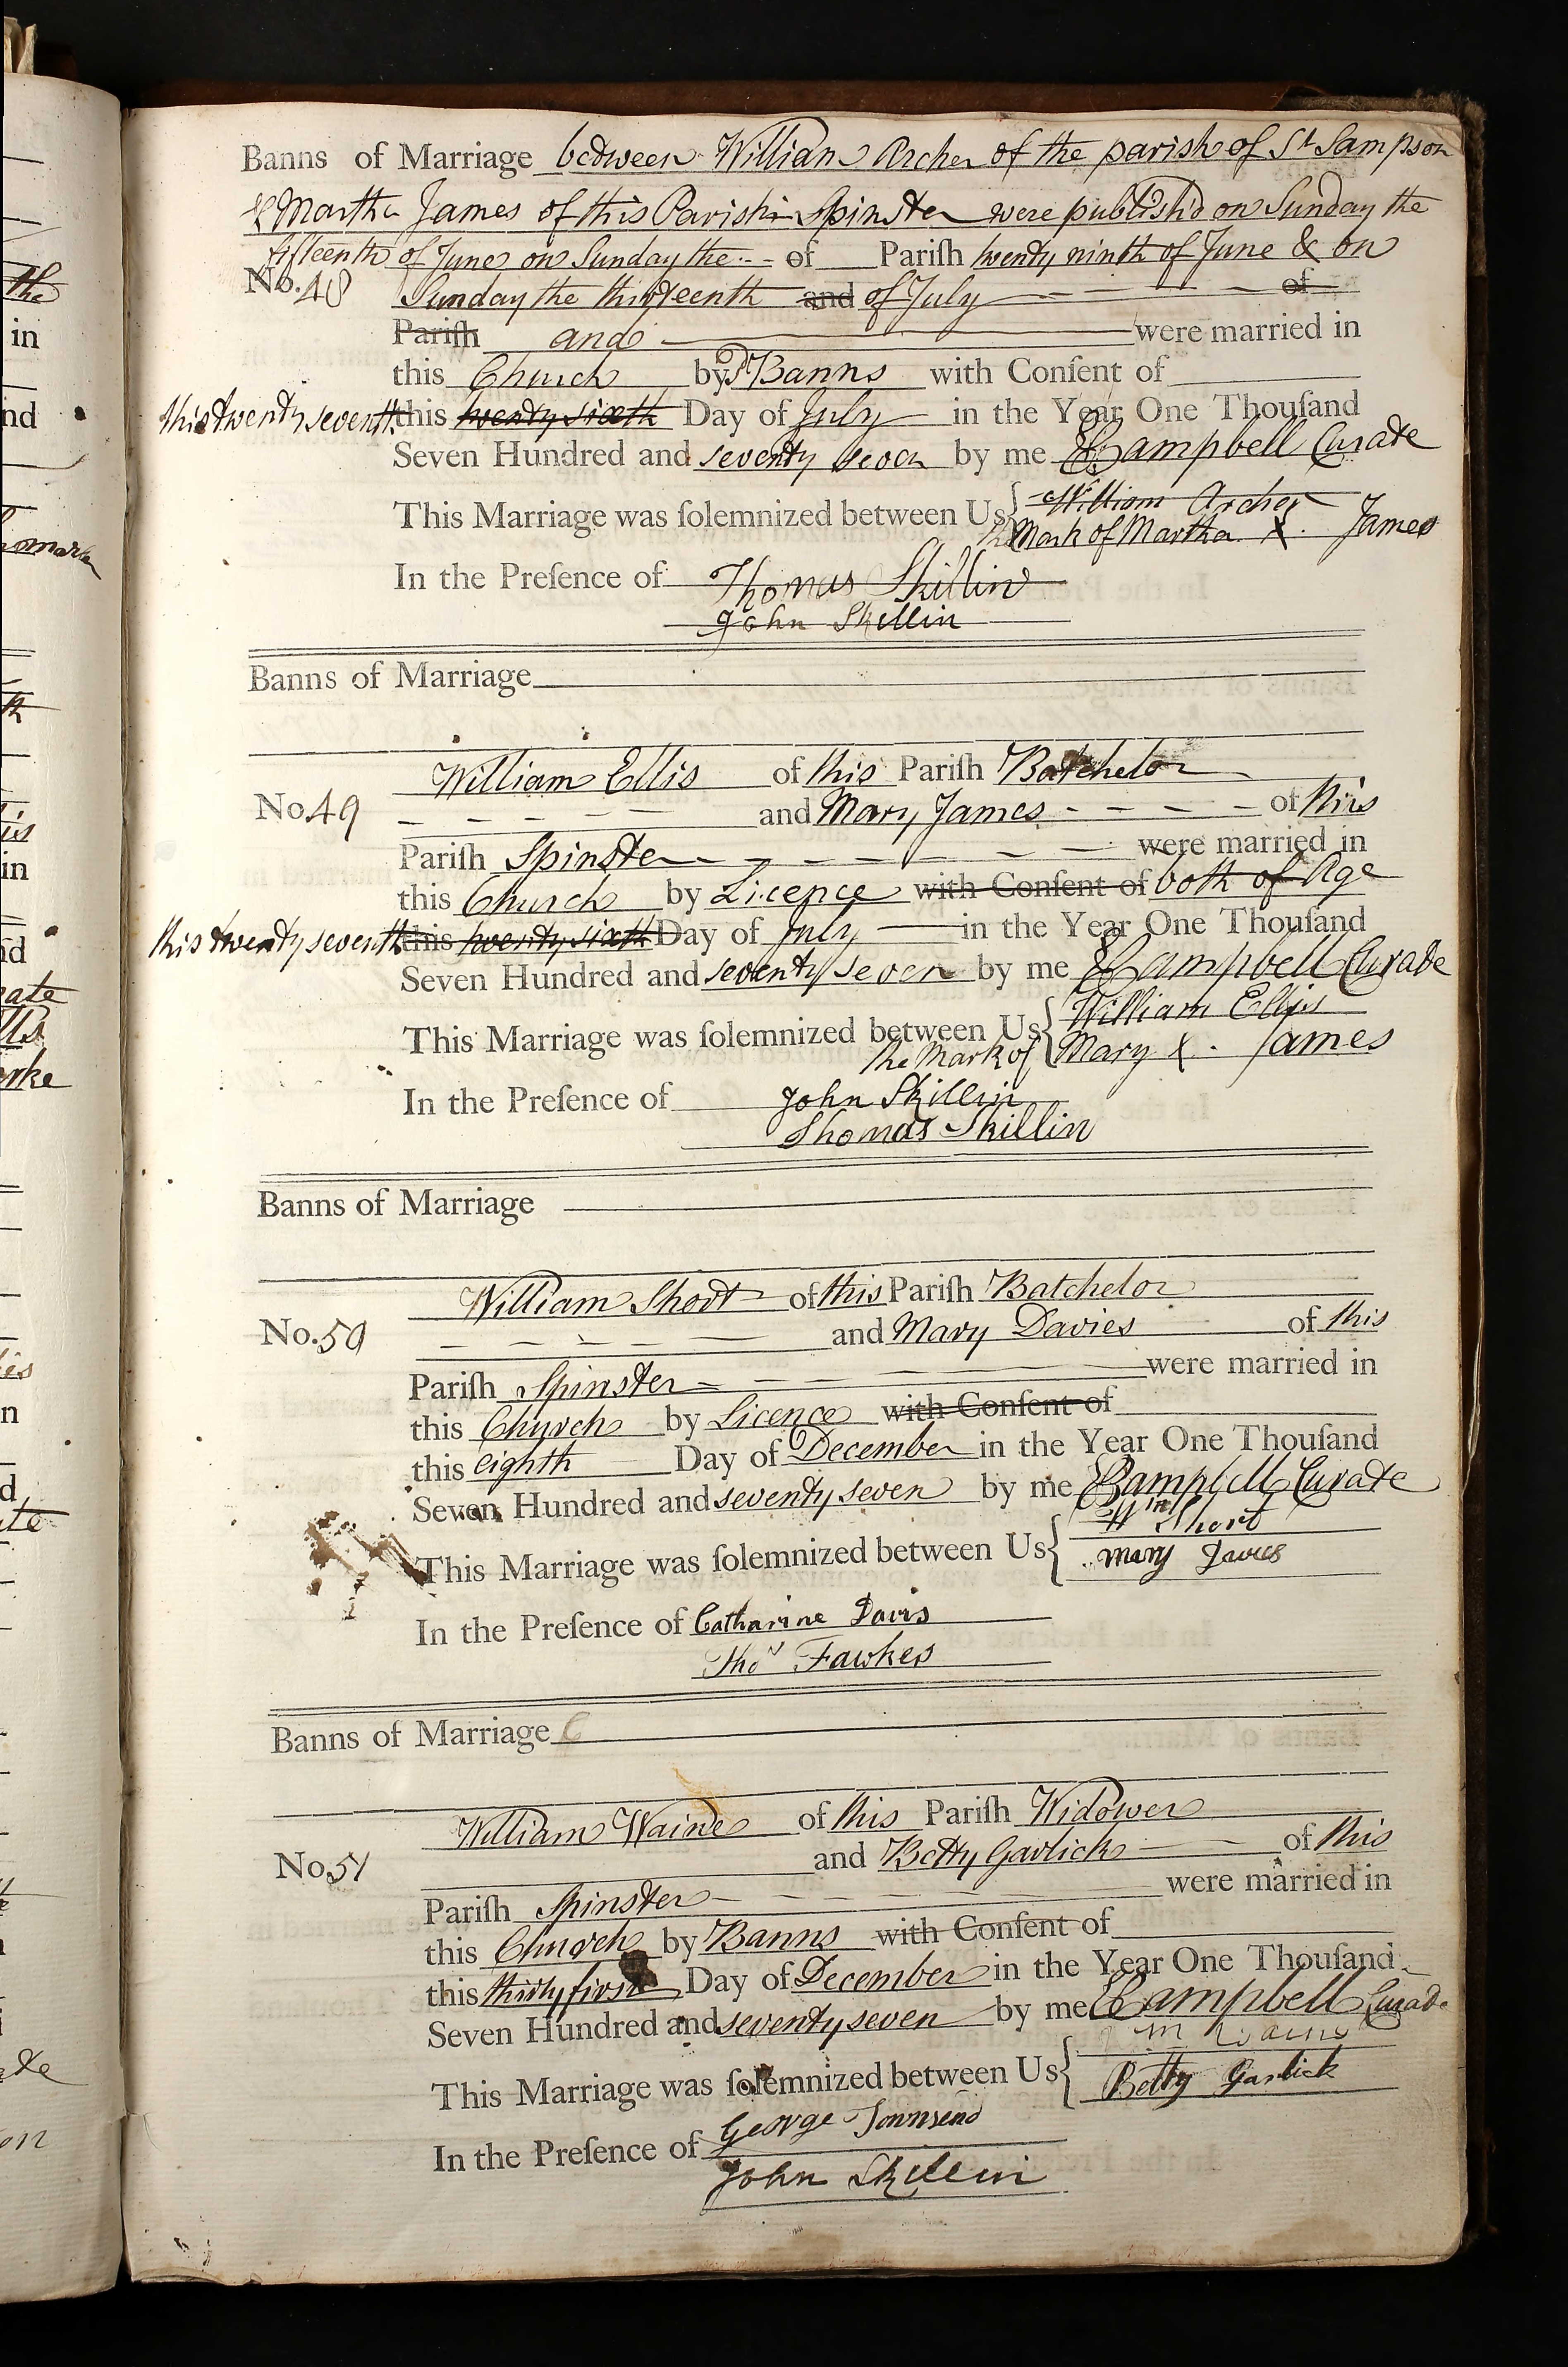 Banns of Marriage between William Archer of the parish of St Sampson
& Martha James of this Parish Spinster were publish'd on Sunday the
fifteenth of June on Sunday the -- of Pariſh twenty ninth of June & on
No. 48 Sunday the thirteenth and of July of
Pariſh and were married in
this Church by Banns with Conſent of
this twenty seventh this twenty sixth Day of July in the Year One Thouſand
Seven Hundred and seventy seven by me Campbell Curate
This Marriage was ſolemnized between Us William Archer
the Mark of Martha X James
In the Preſence of Thomas Skillin
John Skillin
Banns of Marriage
William Ellis of this Pariſh Batchelor
No. 49 and Mary James of this
Pariſh Spinster were married in
this Church by Licence with Conſent of both of Age
this twenty seventh this twenty sixth Day of July in the Year One Thouſand
Seven Hundred and seventy seven by me Campbell Curate
This Marriage was ſolemnized between Us William Ellis
the Mark of Mary X James
In the Preſence of John Skillin
Thomas Skillin
Banns of Marriage
William Short of this Pariſh Batchelor
No. 50 and Mary Davies of this
Pariſh Spinster were married in
this Church by Licence with Conſent of
this eighth Day of December in the Year One Thouſand
Seven Hundred and seventy seven by me Campbell Curate
This Marriage was ſolemnized between Us Wm Short
Mary Davies
In the Preſence of Catharine Davis
Thos Fawkes
Banns of Marriage
William Waine of this Pariſh Widower
No. 51 and Betty Garlick of this
Pariſh Spinster were married in
this Church by Banns with Conſent of
this thirty first Day of December in the Year One Thouſand
Seven Hundred and seventy seven by me Campbell Curate
This Marriage was ſolemnized between Us Wm Waine
Betty Garlick
In the Preſence of George Townsend
John Skillin